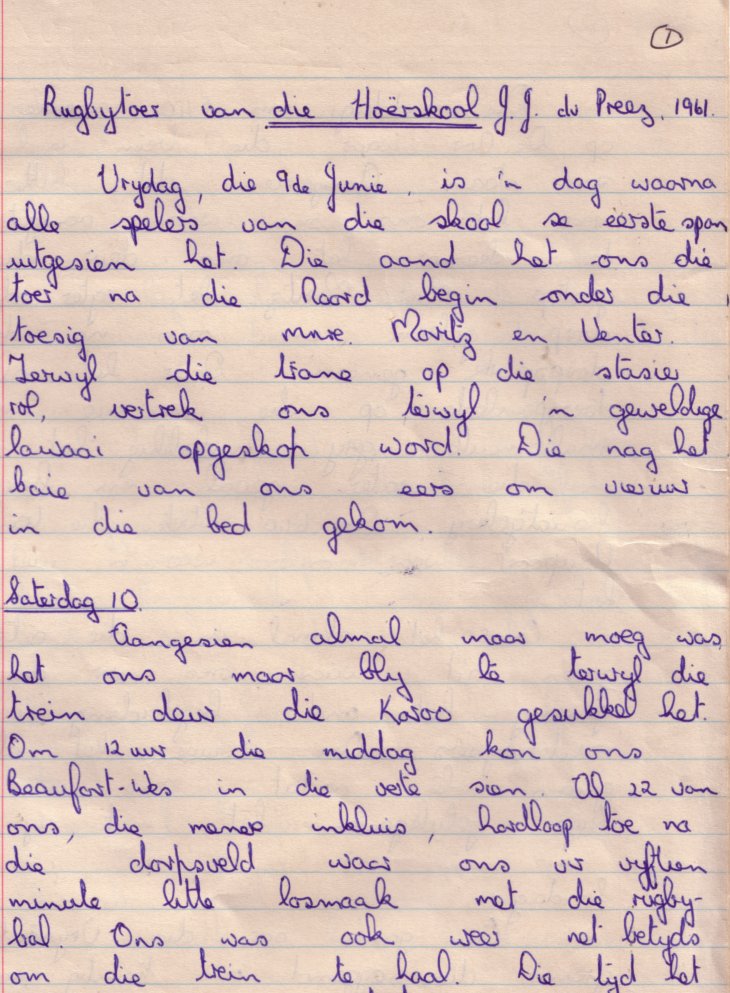 1
Rugbytoer van die Hoërskool J.J. du Preez, 1961.
Vrydag, die 9de Junie, is 'n dag waarna
alle spelers van die skool se eerste span
uitgesien het. Die aand het ons die
toer na die Noord begin onder die
toesig van mnre. Moritz en Venter.
Terwyl die trane op die stasie
rol, vertrek ons terwyl 'n geweldige
lawaai opgeskop word. Die nag het
baie van ons eers om vieruur
in die bed gekom.
Saterdag 10.
Aangesien almal maar moeg was,
het ons maar bly lê terwyl die
trein deur die Karoo gesukkel het.
Om 12 uur die middag kon ons
Beaufort-Wes in die verte sien. Al 22 van
ons, die menere inkluis, hardloop toe na
die dorpsveld waar ons vir vyftien
minute litte losmaak met die rugby-
bal. Ons was ook weer net betyds
om die trein te haal. Die tyd het